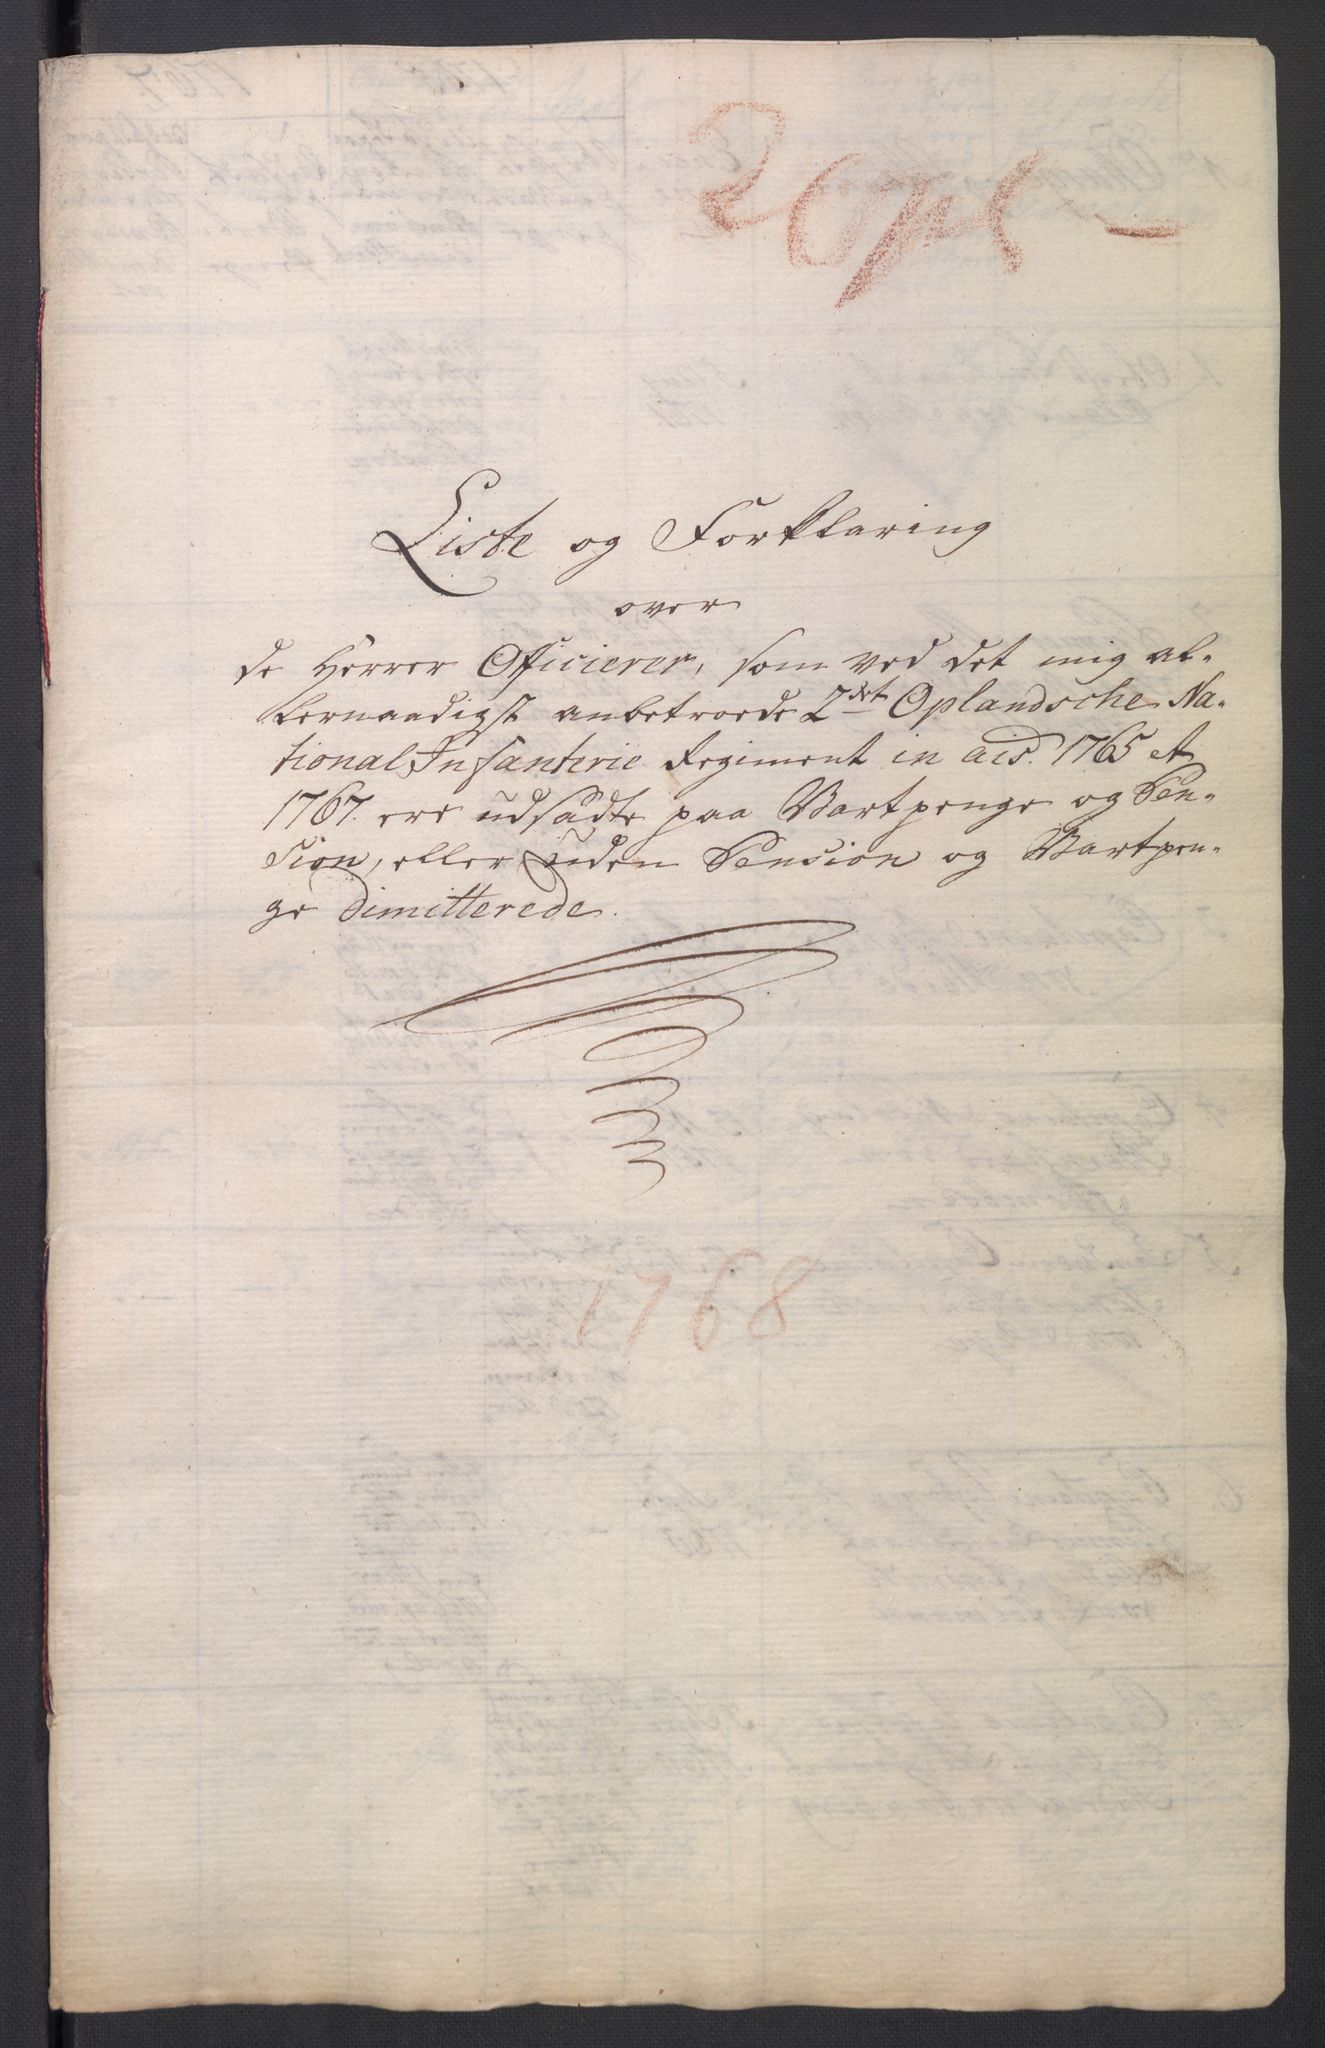 2 Opl
Liste og Forklaring
over
de Herrer Officierer, som ved det mig al-
lernaadigst anbetroede 2det Oplandsche Na-
tional Infanterie Regiment in ais. 1765 et
1767. ere udsadte paa Vartpenge og Pen-
sion, eller uden Pension og Vartpen-
ge dimitterede.
1768